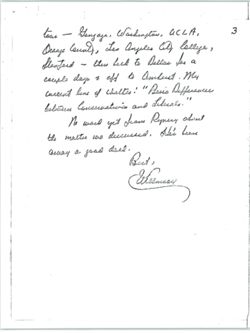 3
tons — Gonzaga, Washington, UCLA,
Orange County, Los Angeles City College,
Stanford — then back to Dallas for a
couple days & off to Amherst. My
current line of chatter: "Basic Differences
between Conservatives and Liberals."
No word yet from Regnery about
the matter we discussed. He's been
away a good deal.
Best,